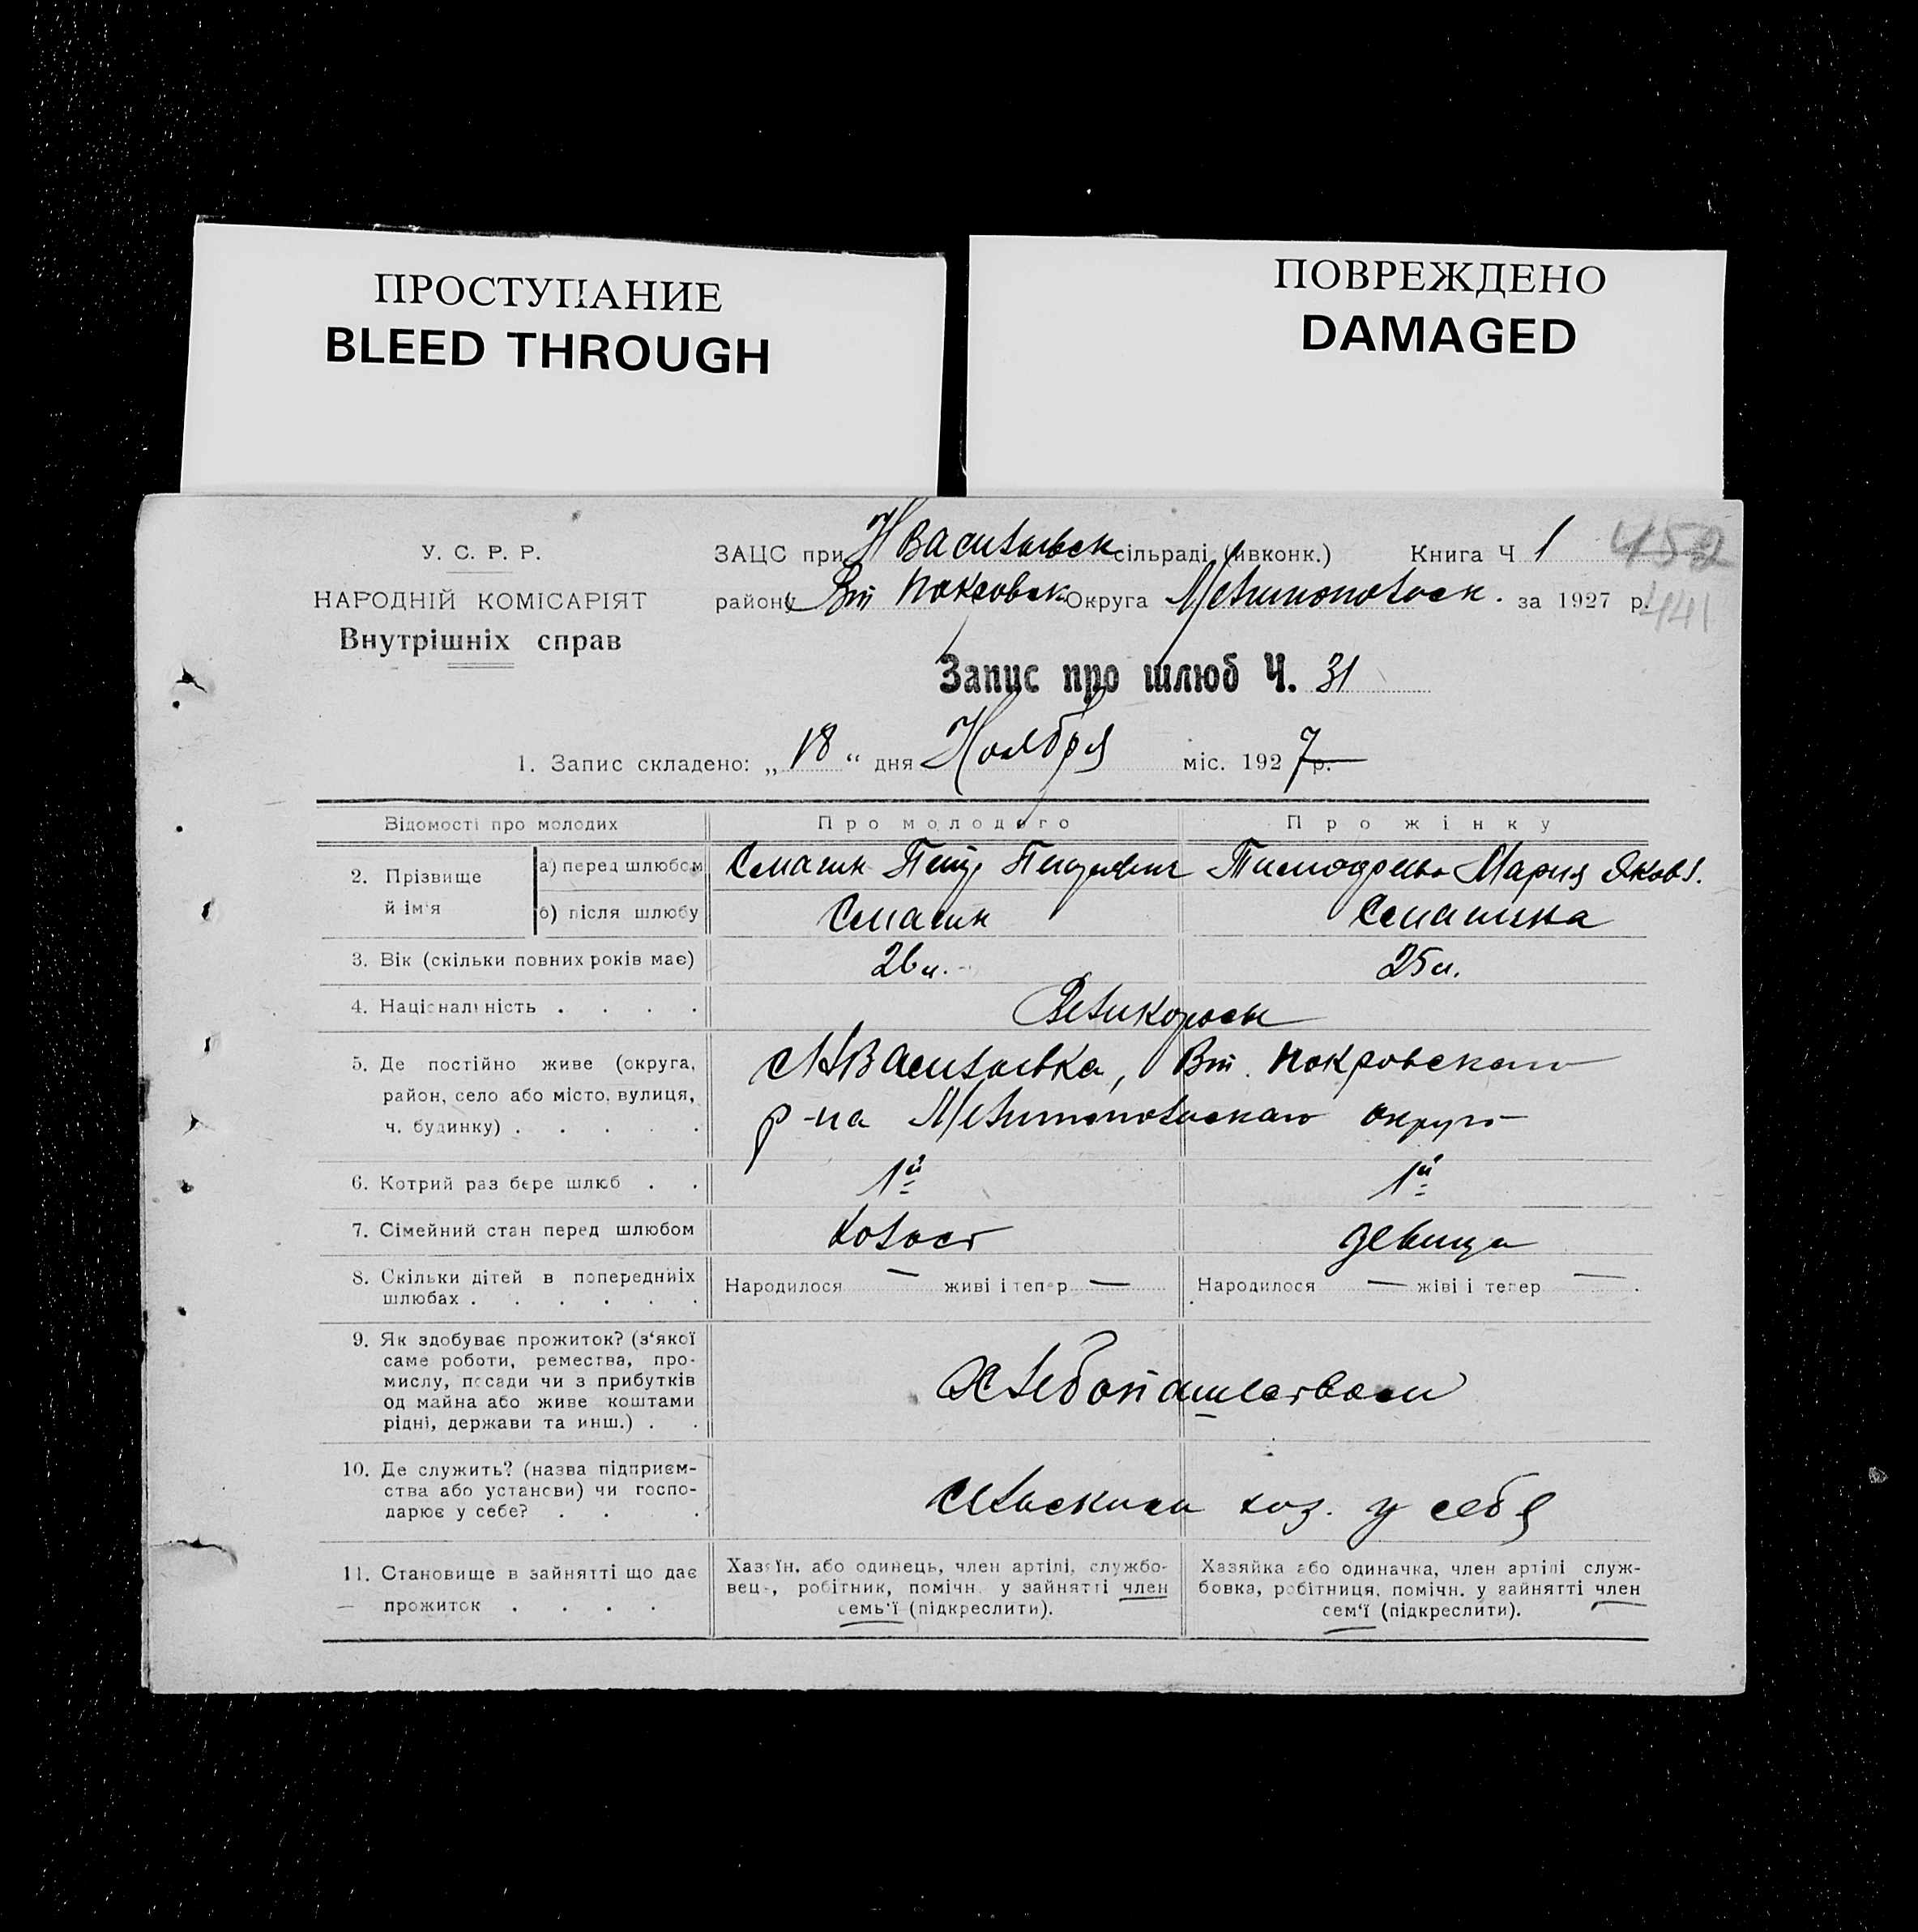 ПРОСТУПАНИЕ
BLEED THROUGH
ПОВРЕЖДЕНО
DAMAGED
У. С. Р. Р.
НАРОДНІЙ КОМІСАРІЯТ
Внутрішніх справ
ЗАЦС при Н Васильевск сільраді (ивконк.) Книга Ч 1 452
району Вт Покровск Округа Мелитопольск. за 1927 р. 441
Запис про шлюб Ч. 31
1. Запис складено: „ 18 “ дня Ноября міс. 1927 р.
Відомості про молодих
Про молодого
Про жінку
2. Прізвище й ім'я
а) перед шлюбом
Петр Мария Яковл.
б) після шлюбу
3. Вік (скільки повних років має)
26 л. 25 л.
4. Національність . . . .
Великороссы
5. Де постійно живе (округа,
район, село або місто, вулиця,
ч. будинку) . . . . .
с Н Васильевка, Вт. Покровскаго
р-на Мелитопольскаго округа
6. Котрий раз бере шлюб . .
1й 1й
7. Сімейний стан перед шлюбом
холост девица
8. Скільки дітей в попередніх
шлюбах . . . . . .
Народилося — живі і тепер —
Народилося — жіві і тепер — .
9. Як здобуває прожиток? (з‘якої
саме роботи, ремества, про-
мислу, посади чи з прибутків
од майна або живе коштами
рідні, держави та инш.) . .
Хлебопашеством
10. Де служить? (назва підприєм-
ства або установи) чи госпо-
дарює у себе? . . .
сельским хоз. у себя
11. Становище в зайнятті що дає
— прожиток . . . .
Хазяїн, або одинець, член артілі, службо-
вець, робітник, помічн. у зайнятті член
семь‘ї (підкреслити).
Хазяйка або одиначка, член артілі служ-
бовка, робітниця, помічн. у зайнятті член
сем‘ї (підкреслити).